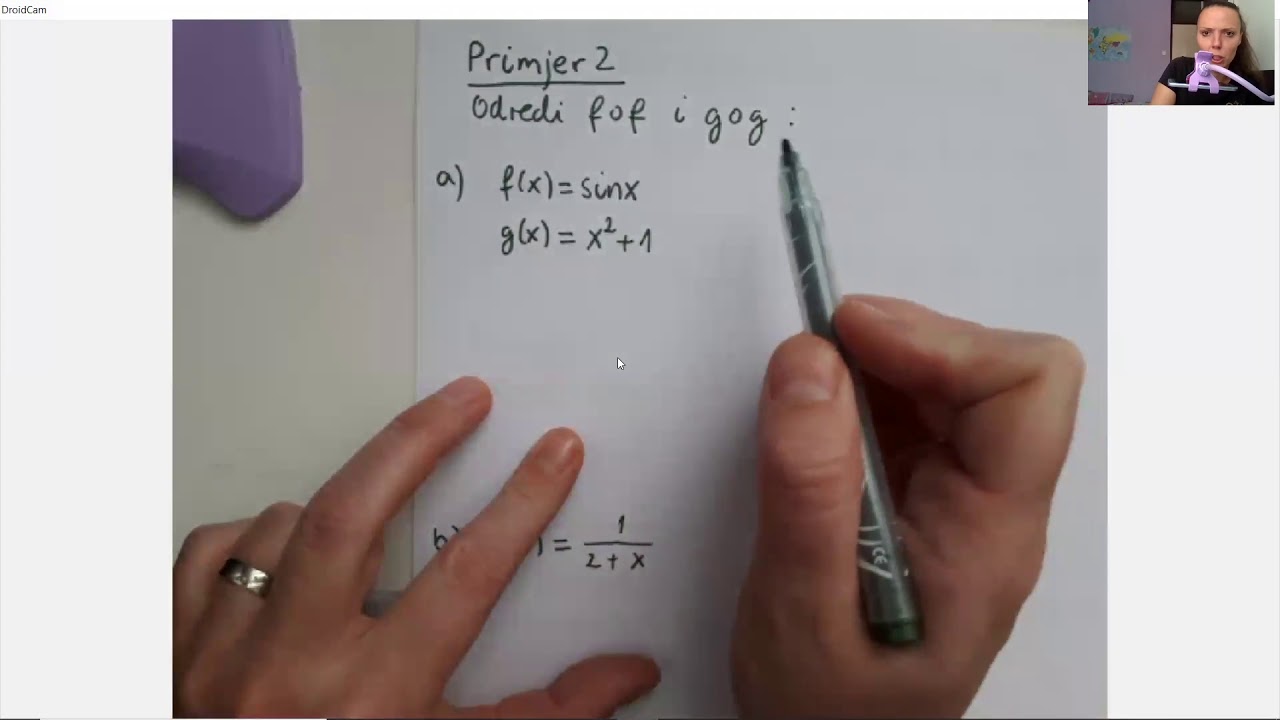 DroidCam
Primjer 2
Odredi fof i gog :
a) f(x) = sinx
g(x) = x²+1
= 1
2 + x
CE